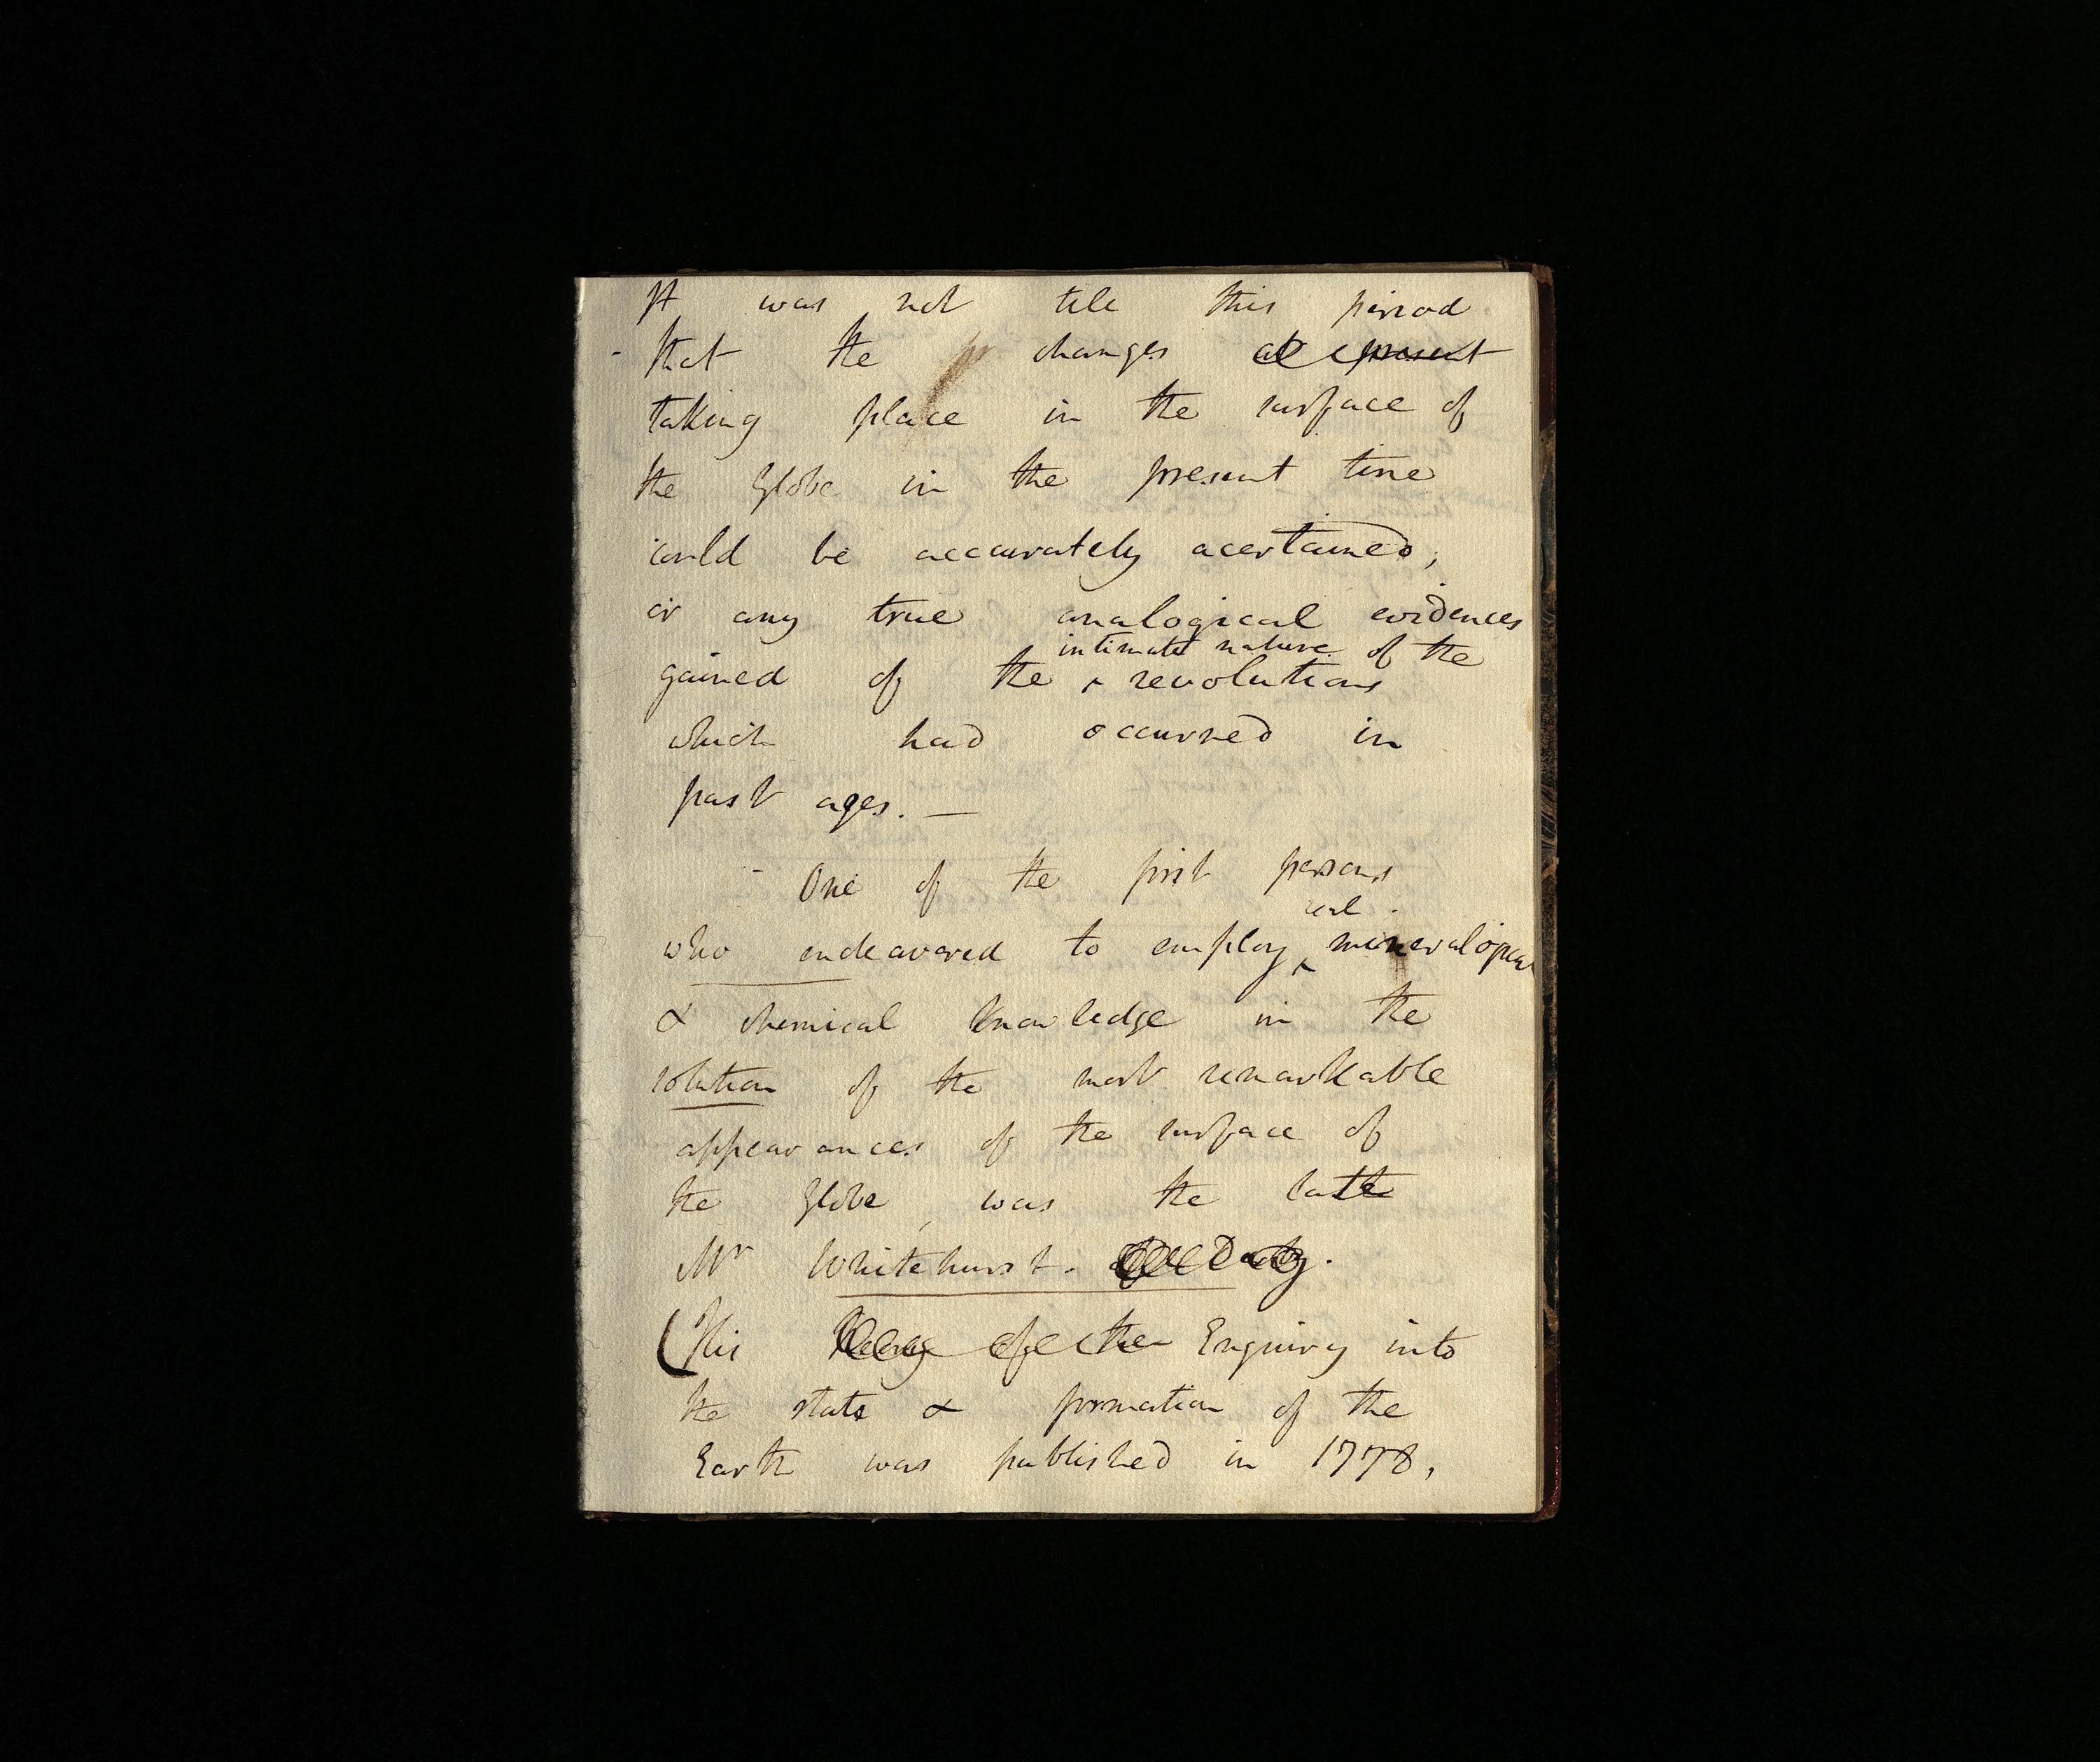 It was not till this period
- that the changes at present
taking place in the surface of
the Globe in the present time
could be accurately acertained,
or any true analogical evidences
intimate nature of the
gained of the ^ revolutions
which had occurred in
past ages. —
- One of the first persons
real
who endeavored to employ ^ mineralogical
& chemical knowledge in the
solution of the most remarkable
appearances of the surface of
the Globe, was the late
Mr Whitehurst.
(His of the Enquiry into
the state & formation of the
Earth was published in 1778,